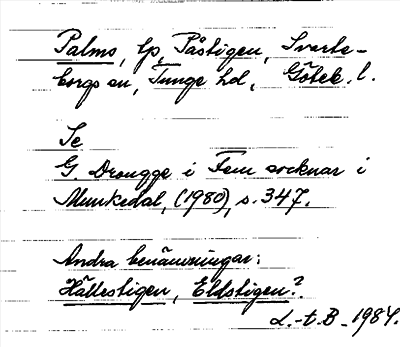 Palms, lp, Påstigen, Svarte-
borgs sn, Tunge hd, Göteb. l.
Se
G. Drougge i Fem socknar i
Munkedal, (1980), s. 347.
Andra benämningar:
Hällestigen, Eldstigen?
L.-t. B - 1984.